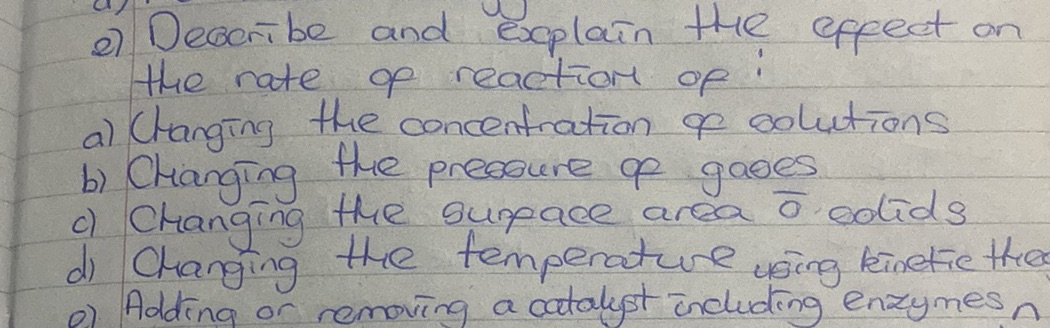 e) Describe and explain the effect on
the rate of reaction of :
a) Changing the concentration of solutions
b) Changing the pressure of gases
c) Changing the surface area o solids
d) Changing the temperature using kinetic
e) Adding or removing a catalyst including enzymes